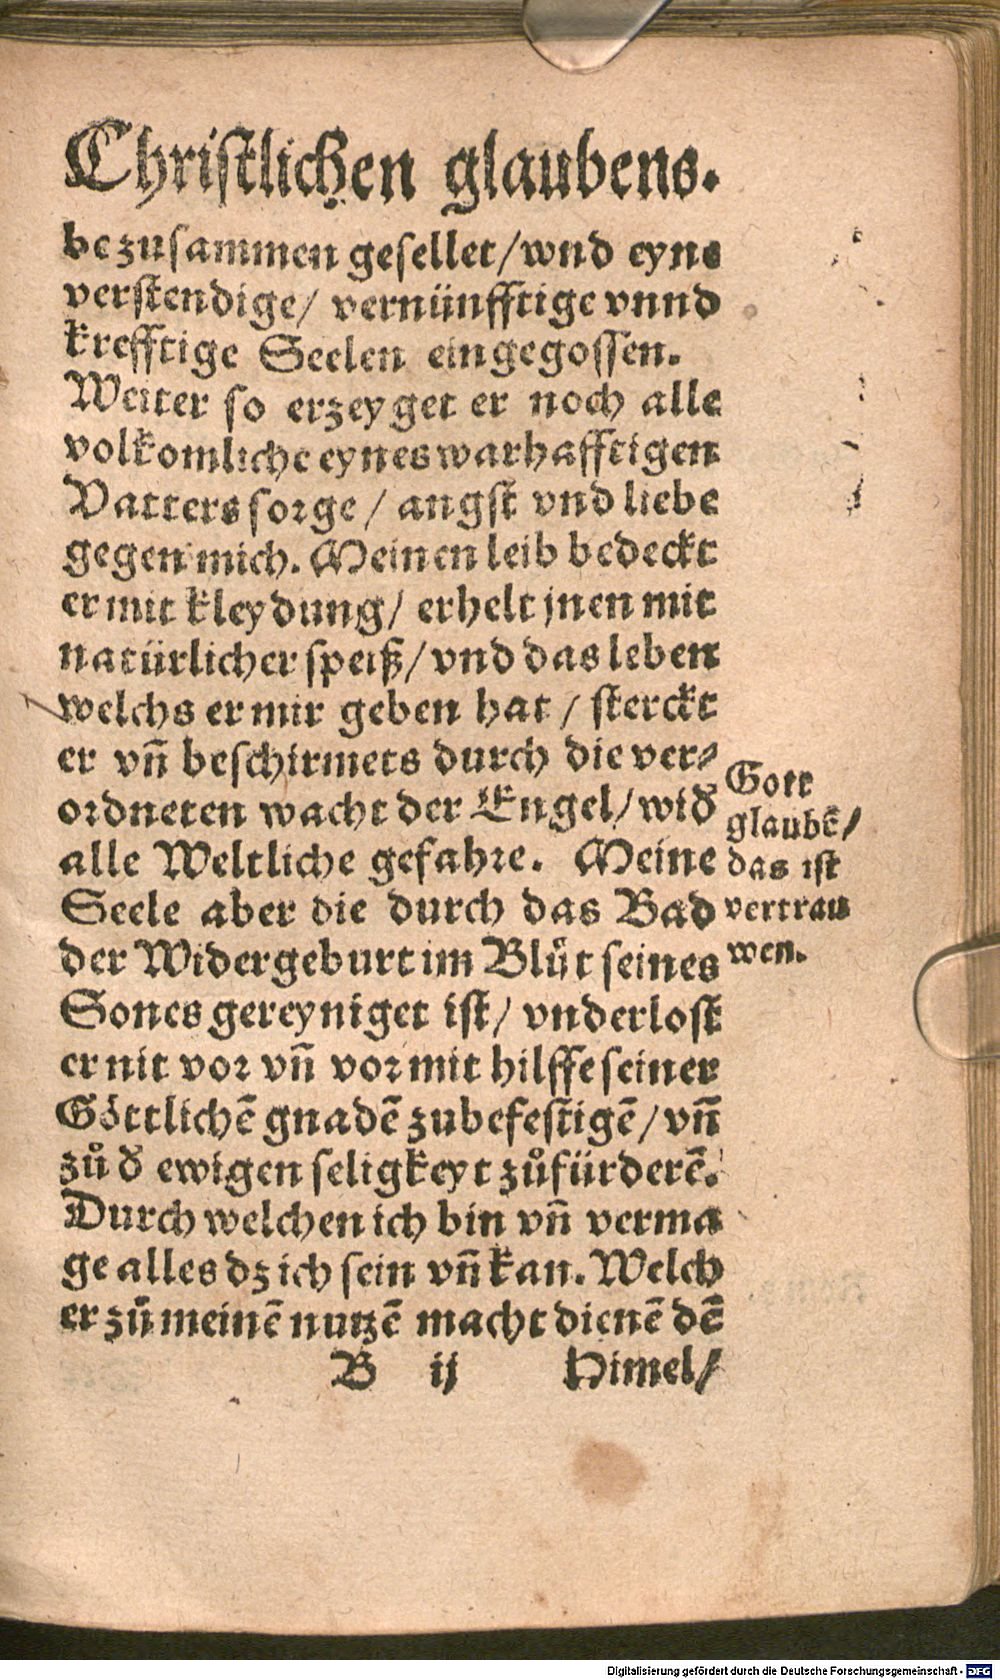 Christlichen glaubens.
be zusammen gesellet/ wnd eyns
verstendige/ vernünfftige vnnd
krefftige Seelen eingegossen.
Weiter so erzeyget er noch alle
volkomliche eynes warhafftigen
Vatters sorge / angst vnd liebe
gegen mich. Meinen leib bedeckt
er mit kleydung/ erhelt jnen mit
natürlicher speiß/ vnd das leben
welchs er mir geben hat / sterckt
er vñ beschirmets durch die ver⸗
ordneten wacht der Engel/ wid̕
alle Weltliche gefahre. Meine
Seele aber die durch das Bad
der Widergeburt im Blůt seines
Sones gereyniget ist/ vnderlost
er nit vor vñ vor mit hilffe seiner
Göttlichẽ gnadẽ zubefestigẽ/ vñ
zů d̕ ewigen seligkeyt zůfürderẽ.
Durch welchen ich bin vñ verma
ge alles dz ich sein vñ kan. Welch
er zů meinẽ nutzẽ macht dienẽ dẽ
B ij Himel/
Gott
glaubẽ/
das ist
vertrau
wen.
Digitalisierung gefördert durch die Deutsche Forschungsgemeinschaft - DFG